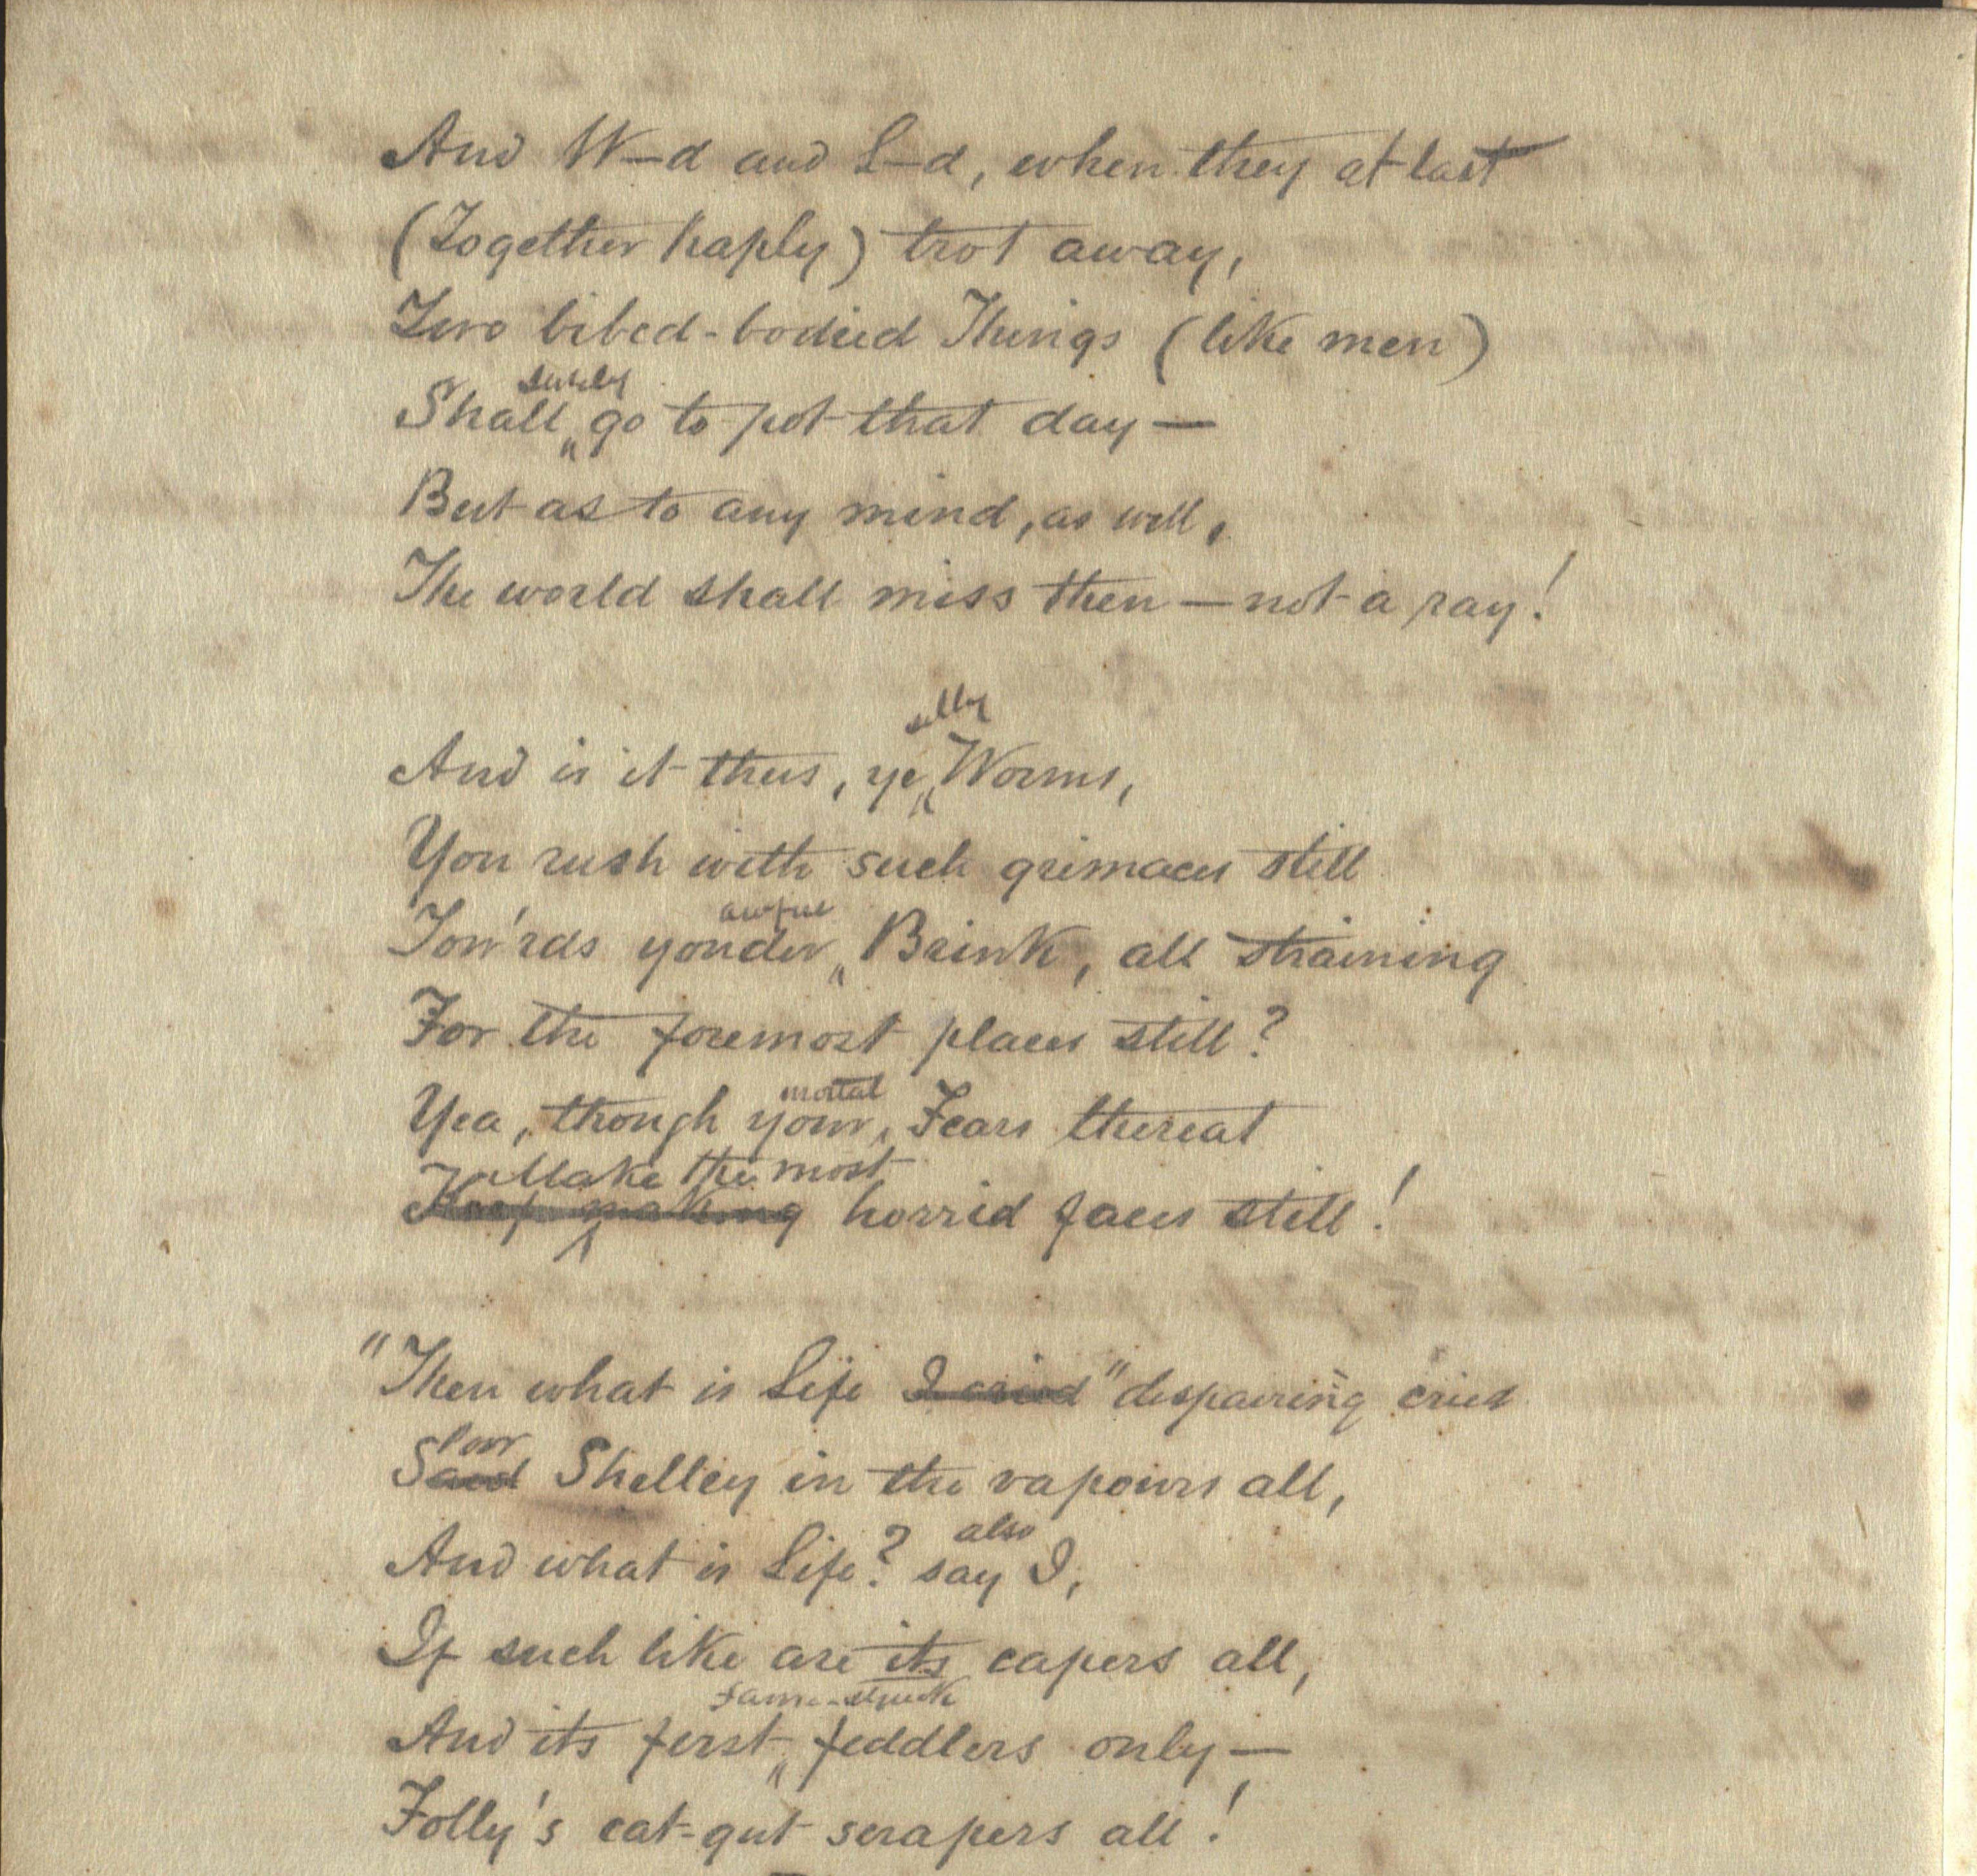 And W—d and L—d, when they at last
(Together haply) trot away,
Two bibed-bodied Things (like men)
Shall surely go to pot that day —
But as to any mind, as well,
The world shall miss then — not a ray!
And is it thus, ye silly Worms,
You rush with such grimaces still
Tow'rds yonder awful Brink, all straining
For the foremost places still?
Yea, though your mortal Fears thereat
Make the most
Keep making horrid faces still!
"Then what is Life I cried" despairing cries
Poor
Said Shelley in the vapours all,
And what is Life? say also I,
If such like are its capers all,
And its first fame-struck feddlers only —
Folly's cat-gut scrapers all!